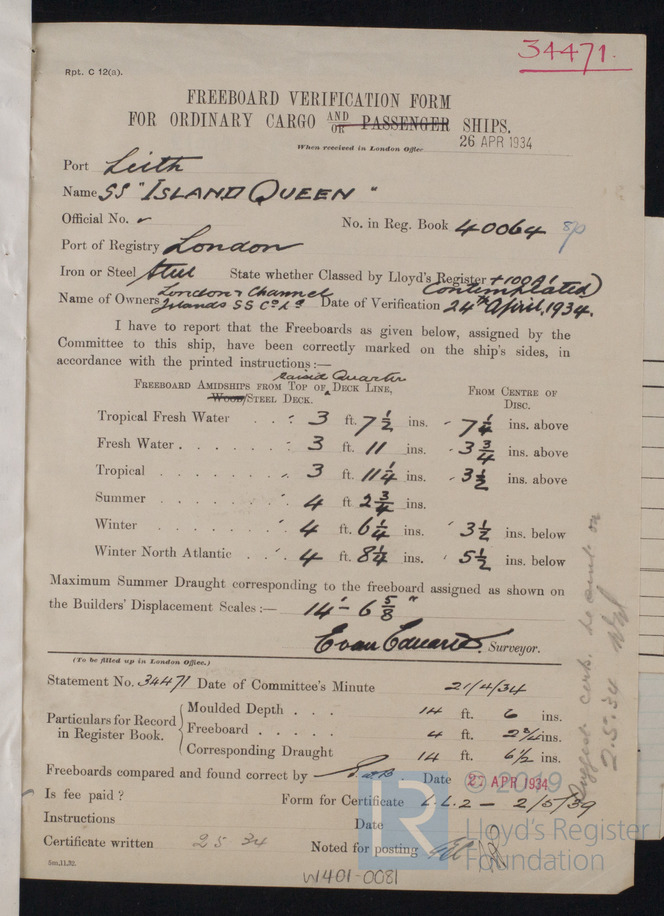 34471.
Rpt. C 12(a).
FREEBOARD VERIFICATION FORM
FOR ORDINARY CARGO AND OR PASSENGER SHIPS.
When received in London Office 26 APR 1934
Port Leith
Name SS "ISLAND QUEEN"
Official No. No. in Reg. Book 40064
Port of Registry London
Iron or Steel Steel State whether Classed by Lloyd's Register +100A1 Contemplated)
Name of Owners London & Channel Islands SS Co Ld Date of Verification 24th April, 1934.
I have to report that the Freeboards as given below, assigned by the
Committee to this ship, have been correctly marked on the ship's sides, in
accordance with the printed instructions:—
raised Quarter
FREEBOARD AMIDSHIPS FROM TOP OF DECK LINE, FROM CENTRE OF
WOOD/STEEL DECK. DISC.
Tropical Fresh Water 3 ft. 7 1/2 ins. 7 1/4 ins. above
Fresh Water 3 ft. 11 ins. 3 3/4 ins. above
Tropical 3 ft. 11 1/4 ins. 3 1/2 ins. above
Summer 4 ft 2 3/4 ins.
Winter 4 ft. 6 1/4 ins. 3 1/2 ins. below
Winter North Atlantic 4 ft. 8 1/4 ins. 5 1/2 ins. below
Maximum Summer Draught corresponding to the freeboard assigned as shown on
the Builders' Displacement Scales:— 14'-6 5/8"
Evan Edwards. Surveyor.
(To be filled up in London Office.)
Statement No. 34471 Date of Committee's Minute 21/4/34
Particulars for Record in Register Book.
Moulded Depth . . . 14 ft. 6 ins.
Freeboard . . . . . 4 ft. 2 3/4 ins.
Corresponding Draught 14 ft. 6 1/2 ins.
Freeboards compared and found correct by Date 27 APR 1934
Is fee paid? Form for Certificate L.L.2 - 2/5/34
Instructions Date
Certificate written 2 5 34 Noted for posting
5m.11.32.
W401-0081
2.5.34
© 2019
LR
Lloyd's Register
Foundation